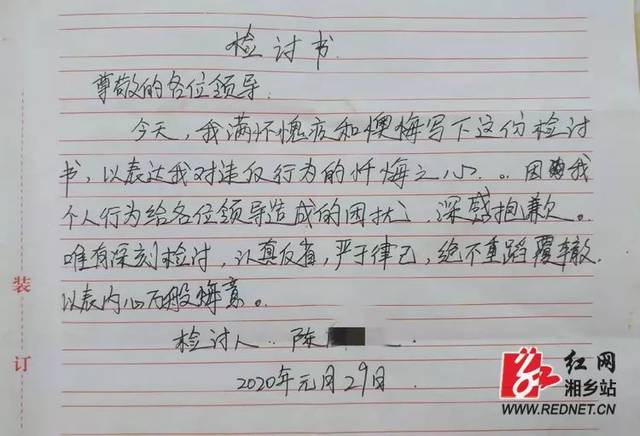 检讨书
尊敬的各位领导:
今天,我满怀愧疚和懊悔写下这份检讨
书,以表达我对违反行为的忏悔之心。因我
个人行为给各位领导造成的困扰,深感抱歉。
唯有深刻检讨,认真反省,严于律己,绝不重蹈覆辙.
以表内心万般悔意。
检讨人:陈
2020年元月29日.
装
订
红网
湘乡站
WWW.REDNET.CN